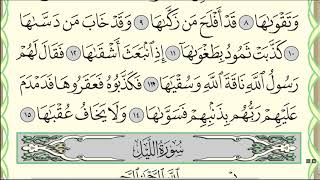 وَتَقْوَىٰهَا ٨ قَدْ أَفْلَحَ مَن زَكَّىٰهَا ٩ وَقَدْ خَابَ مَن دَسَّىٰهَا
١٠ كَذَّبَتْ ثَمُودُ بِطَغْوَىٰهَا ١١ إِذِ ٱنۢبَعَثَ أَشْقَىٰهَا ١٢ فَقَالَ لَهُمْ
رَسُولُ ٱللَّهِ نَاقَةَ ٱللَّهِ وَسُقْيَٰهَا ١٣ فَكَذَّبُوهُ فَعَقَرُوهَا فَدَمْدَمَ
عَلَيْهِمْ رَبُّهُم بِذَنۢبِهِمْ فَسَوَّىٰهَا ١٤ وَلَا يَخَافُ عُقْبَٰهَا ١٥
سُورَةُ ٱلَّيْلِ